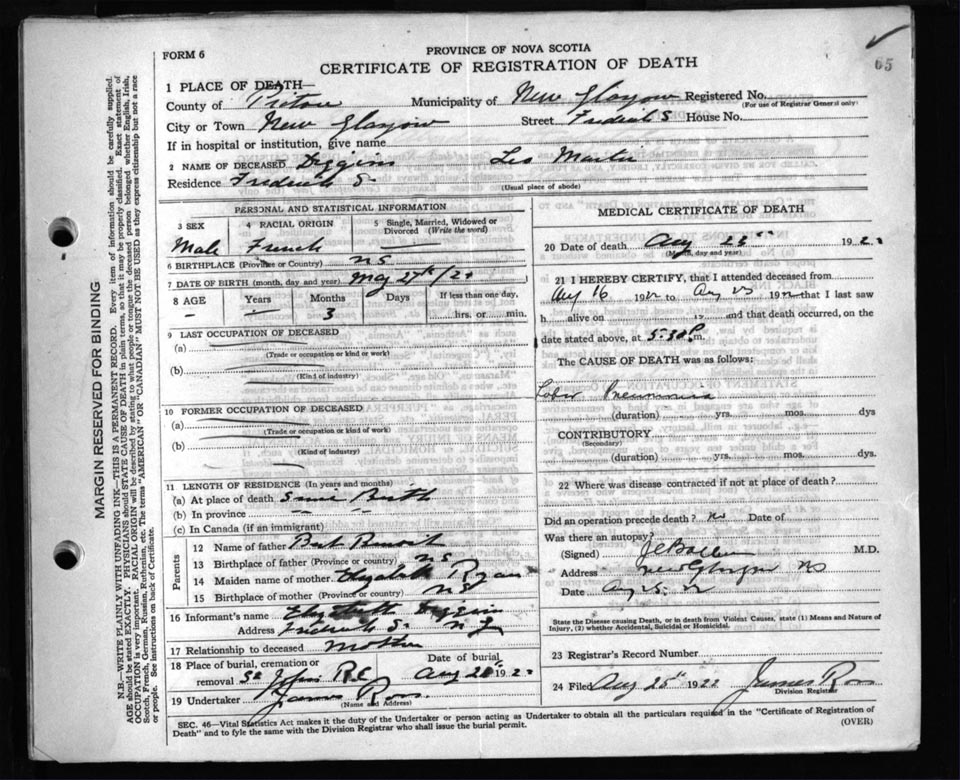 65
FORM 6
PROVINCE OF NOVA SCOTIA
CERTIFICATE OF REGISTRATION OF DEATH
1 PLACE OF DEATH—
County of Pictou Municipality of New Glasgow Registered No. (For use of Registrar General only)
City or Town New Glasgow Street Fredrick S House No.
If in hospital or institution, give name
2 NAME OF DECEASED Diggins Leo Martin
Residence Fredrick S. (Usual place of abode)
PERSONAL AND STATISTICAL INFORMATION
3 SEX 4 RACIAL ORIGIN 5 Single, Married, Widowed or Divorced (Write the word)
Male French
6 BIRTHPLACE (Province or Country) NS
7 DATE OF BIRTH (month, day and year) May 27th /22
8 AGE Years Months Days If less than one day,
3 hrs. or min.
9 LAST OCCUPATION OF DECEASED
(a) (Trade or occupation or kind or work)
(b) (Kind of industry)
10 FORMER OCCUPATION OF DECEASED
(a) (Trade or occupation or kind of work)
(b) (Kind of industry)
11 LENGTH OF RESIDENCE (In years and months)
(a) At place of death Since Birth
(b) In province " "
(c) In Canada (if an immigrant)
Parents
12 Name of father Bert
13 Birthplace of father (Province or country) NS
14 Maiden name of mother Elizabeth Ryan
15 Birthplace of mother (Province or country) NS
16 Informant's name Elizabeth Diggins
Address Fredrick S. N G
17 Relationship to deceased Mother
18 Place of burial, cremation or removal St Johns R.C. Date of burial Aug 26th 1922
19 Undertaker James Ross
(Name and Address)
MEDICAL CERTIFICATE OF DEATH
20 Date of death Aug 1922
(Month, day and year)
21 I HEREBY CERTIFY, that I attended deceased from
Aug 16 1922 to Aug 25 1922 that I last saw
h alive on 19 and that death occurred, on the
date stated above, at 5.30 P. m.
The CAUSE OF DEATH was as follows:
Lobar Pneumonia
(duration) yrs. mos. dys
CONTRIBUTORY
(Secondary)
(duration) yrs. mos. dys.
22 Where was disease contracted if not at place of death?
Did an operation precede death? No Date of
Was there an autopsy?
(Signed) M.D.
Address New Glasgow NS
Date Aug 25. 22
State the Disease causing Death, or in death from Violent Causes, state (1) Means and Nature of Injury, (2) whether Accidental, Suicidal or Homicidal.
23 Registrar's Record Number
24 Filed Aug 25th 1922 James Ross
Division Registrar
SEC. 46—Vital Statistics Act makes it the duty of the Undertaker or person acting as Undertaker to obtain all the particulars required in the "Certificate of Registration of
Death" and to fyle the same with the Division Registrar who shall issue the burial permit. (OVER)
MARGIN RESERVED FOR BINDING
N.B.—WRITE PLAINLY WITH UNFADING INK—THIS IS A PERMANENT RECORD. Every item of information should be carefully supplied.
AGE should be stated EXACTLY. PHYSICIANS should STATE CAUSE OF DEATH in plain terms, so that it may be properly classified. Exact statement of
OCCUPATION is very important. RACIAL ORIGIN will be described by stating to what people or tongue the deceased person belonged whether English, Irish,
Scotch, French, German, Russian, Ruthenian, etc. The terms "AMERICAN" OR "CANADIAN" MUST NOT BE USED as they express citizenship but not a race
or people. See instructions on back of Certificate.